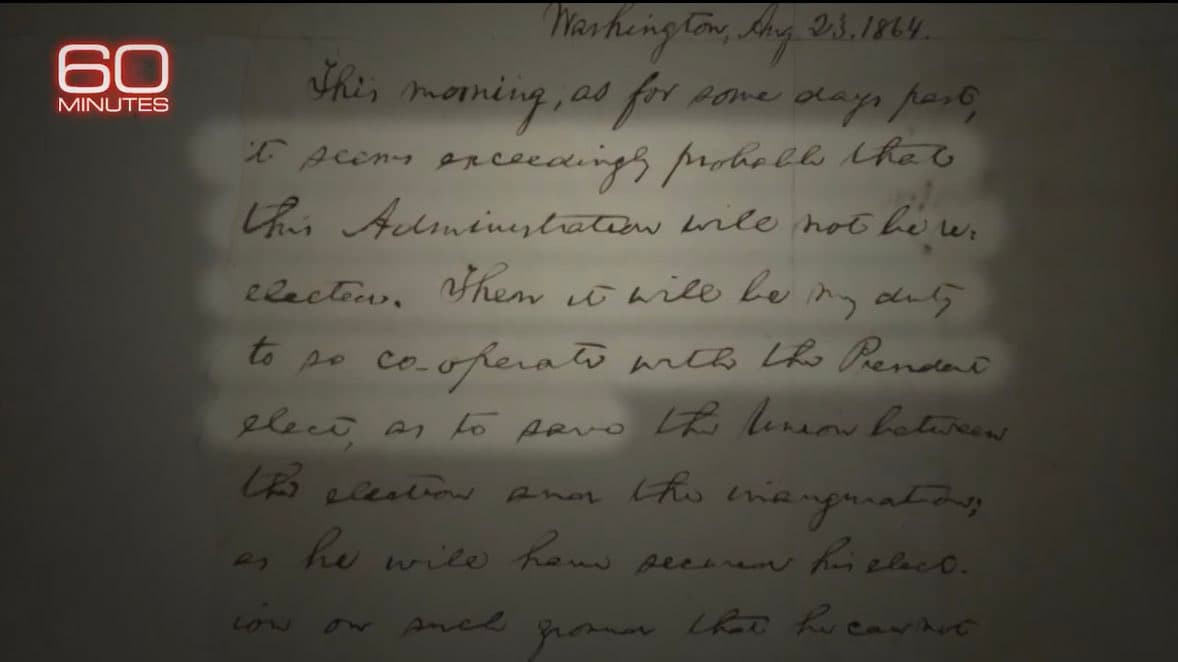 60
MINUTES
Washington, Aug 23. 1864.
This morning, as for some days past,
it seems exceedingly probable that
this Administration will not be re-
elected. Then it will be my duty
to so co-operate with the President
elect, as to save the Union between
the election and the inauguration;
as he will have secured his elect-
ion on such ground that he can not